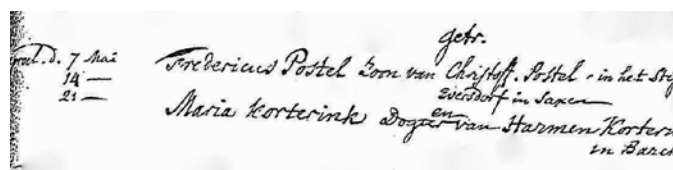 getr.
procl. d. 7 Mai
14 —
21 —
Fredericus Postel Zoon van Christoff. Postel - in het Sty
Eversdorf in Saxen
en
Maria Korterink Dogter van Harmen Korter
in Barch